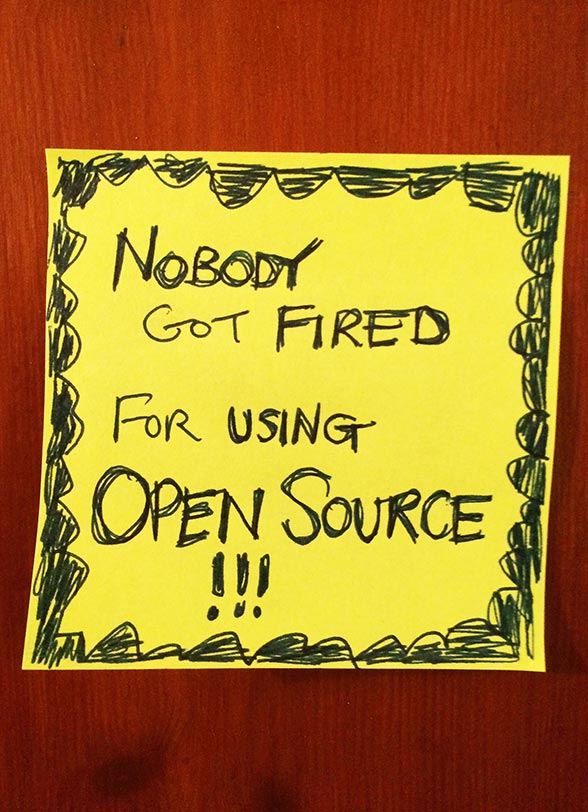 NOBODY
GOT FIRED
FOR USING
OPEN SOURCE
!!!